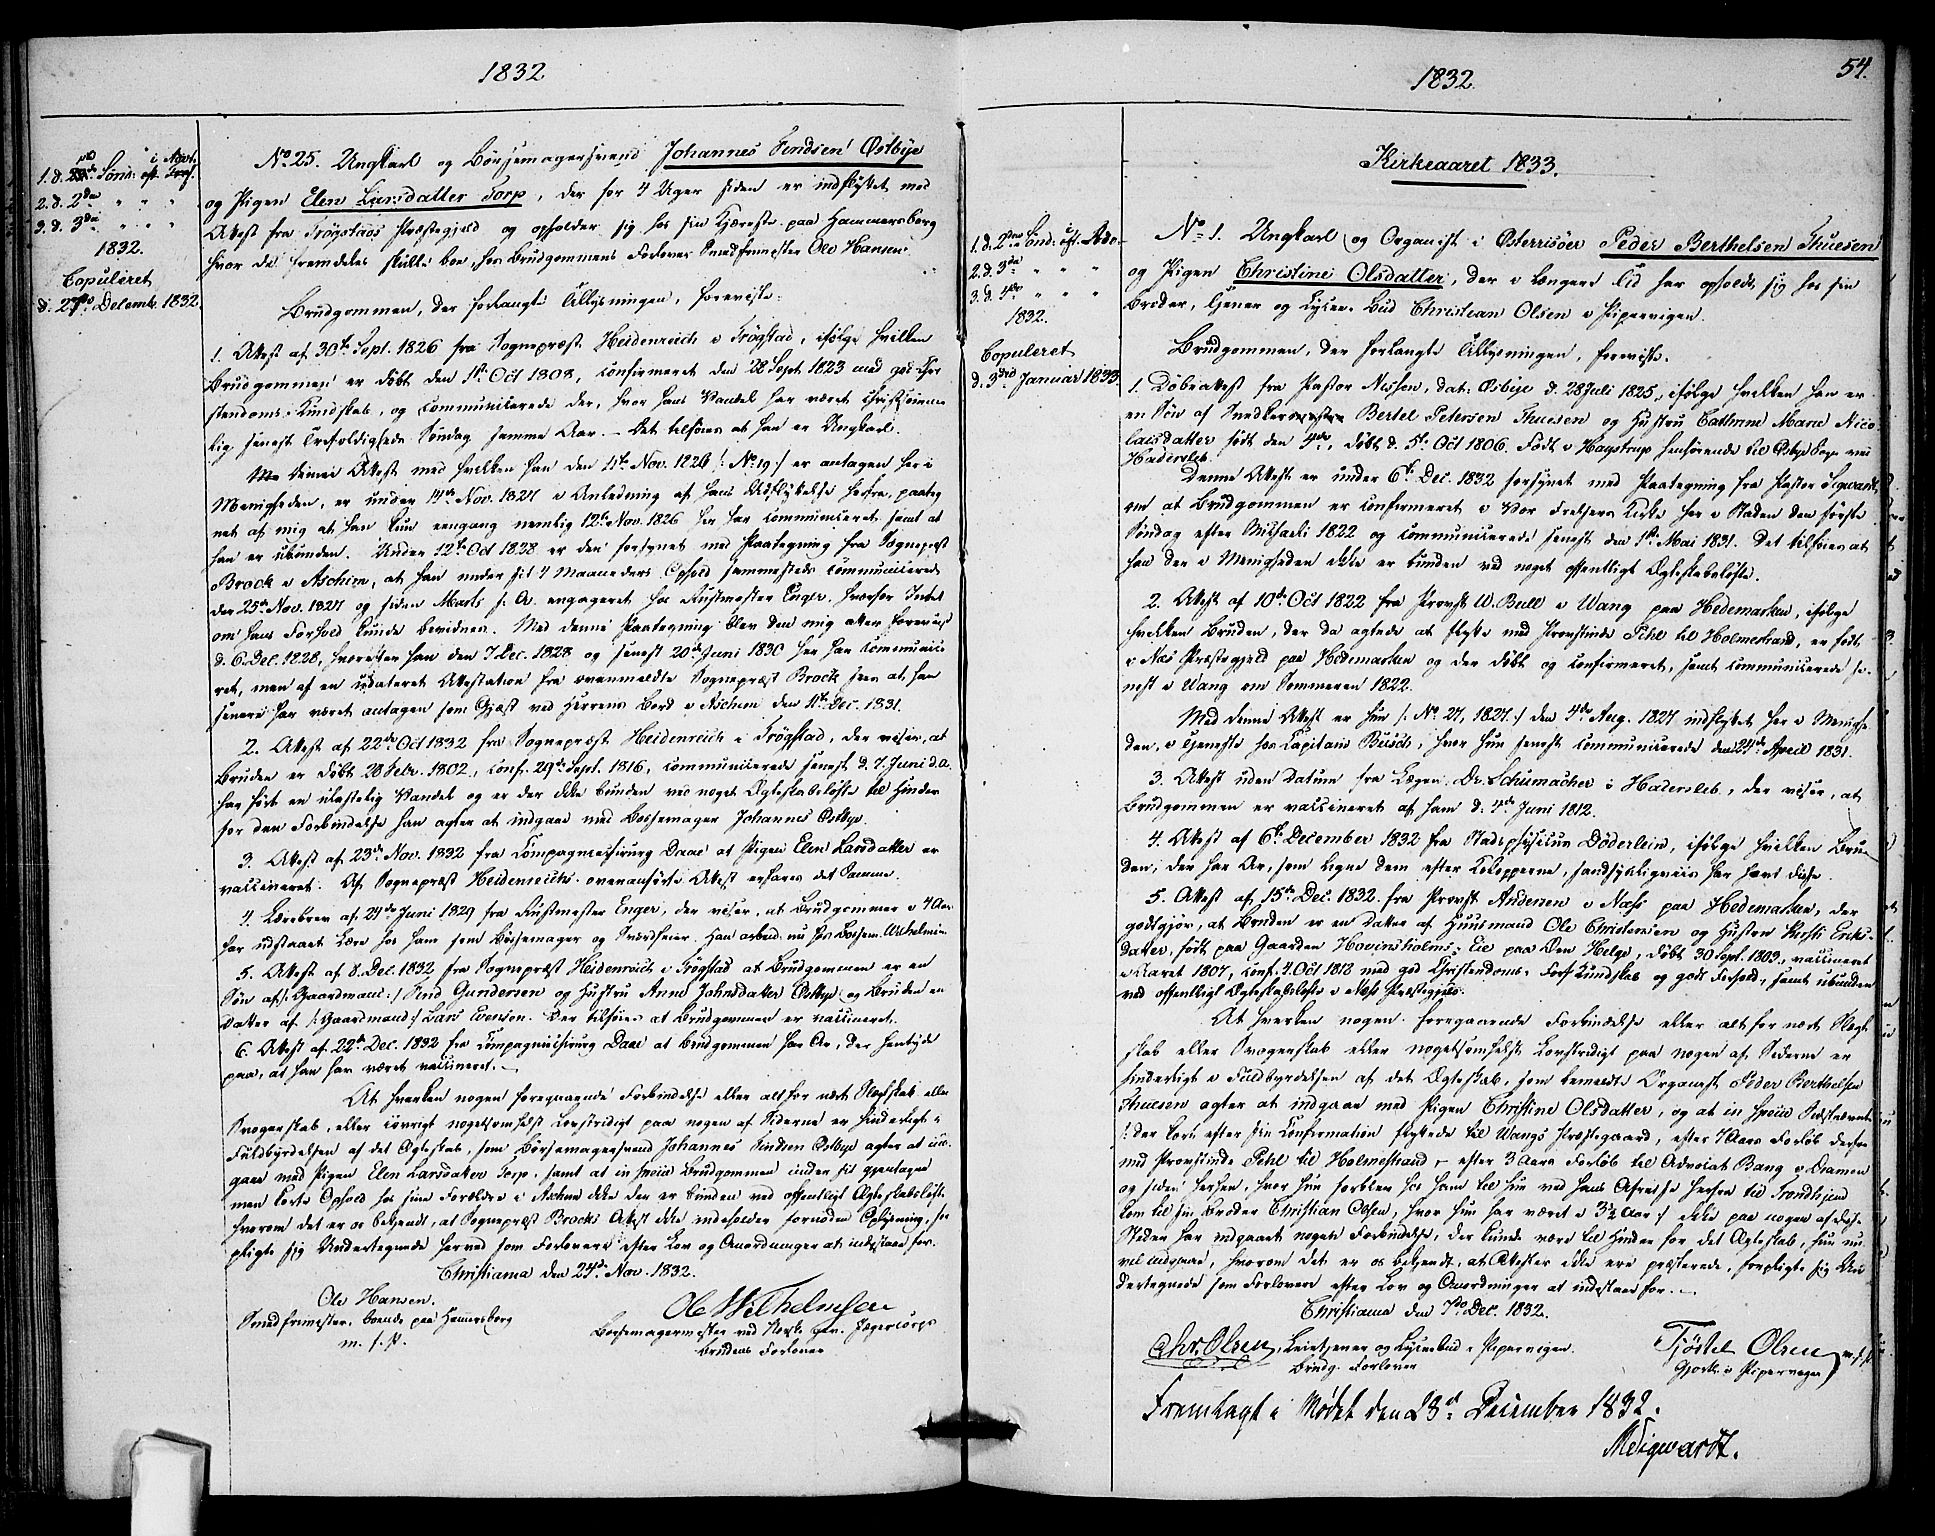 1832
1. d. Sönd: i Advt.
2. d. 2den " " "
3. d. 3die " " "
1832.
Copuleret
d. 27de Decemb. 1832.
No. 25. Ungkarl og Bössemagersvend Johannes Findsen Østbye
og Pigen Elen Larsdatter Torp, der for 4 Uger siden er indflyttet med
Attest fra Trögstads Præstegjeld og opholder sig hos sin Kjæreste paa Hammersborg
hvor de fremdeles skulle boe, hos Brudgommens Forlover Smedfrimester Ole Hansen.
Brudgommen, der forlangte Tillysningen, foreviste:
1. Attest af 30te Sept. 1826 fra Sognepræst Heidenreich i Trögstad, ifølge hvilken
Brudgommen er döbt den 1ste Oct 1808, confirmeret den 28 Sept 1823 med god Chri
stendoms-Kundskab, og communicerede der, hvor hans Vandel har været christsömme
lig, senest Trefoldigheds Söndag samme Aar. – Det tilföies at han er Ungkarl.
Denne Attest med hvilken han den 11te Nov. 1826 /: No 19 :/ er antagen her i
Menigheden, er under 14de Nov. 1827 i Anledning af hans Udflyttelse herfra, paateg
net af mig at han kun eengang nemlig 12te Nov. 1826 her har communiceret samt at
han er ubunden. Under 12te Oct 1828 er den forsynet med Paategning fra Sognepræst
Brock i Aschim, at han under sit 4 Maaneders Ophold sammesteds communicerede
der 25de Nov. 1827 og siden Marts f. A. engageret hos Rustmester Enger, hvorfor Intet
om hans Forhold kunde bevidnes. Med denne Paategning blev den mig atter forevist
d. 6 Dec. 1828, hvorefter han den 7 Dec. 1828 og senest 20de Juni 1830 her har communice
ret, men af en udateret Attestation fra ovenmeldte Sognepræst Brock sees at han
senere har været antagen som Gjæst ved Herrens Bord i Aschim den 11te Dec. 1831.
2. Attest af 22de Oct 1832 fra Sognepræst Heidenreich i Trögstad, der viser, at
Bruden er döbt 28 Febr. 1802, conf. 29de Sept. 1816, communicerede senest d. 7. Juni d. A.
har fört en ulastelig Vandel og er der ikke bunden ved noget Ægteskabslöfte til Hinder
for den Forbindelse han agter at indgaae med Bössemager Johannes Østbye.
3. Attest af 23de Nov. 1832 fra Compagniechirurg Daae at Pigen Elen Larsdatter er
vaccineret. Af Sognepræst Heidenreichs ovenanförte Attest erfares det Samme.
4. Lærebrev af 24de Juni 1829 fra Rustmester Enger, der viser, at Brudgommen i 4 Aar
har udstaaet Lære hos ham som Bössemager og Sværdfeier. Han arbeid. nu hos Bössem. Wilhelmsen
5. Attest af 8. Dec. 1832 fra Sognepræst Heidenreich i Trögstad at Brudgommen er en
Sön af /: Gaardmand :/ Find Gundersen og Hustru Anne Johnsdatter Østbye og Bruden en
Datter af /: Gaardmand :/ Lars Evensen. Der tilföies at Brudgommen er vaccineret.
6. Attest af 22de Dec. 1832 fra Compagniechirurg Daae at Brudgommen har Ar, der hentyde
paa, at han har været vaccineret. –
At hverken nogen foregaaende Forbindelse eller altfor nært Slægtskab eller
Svogerskab, eller iövrigt nogetsomhelst Lovstridigt paa nogen af Siderne er hinderligt i
Fuldbyrdelsen af det Ægteskab, som Bössemagersvend Johannes Findsen Østbye agter at ind
gaae med Pigen Elen Larsdatter Torp, samt at in specie Brudgommen under sit gjentagne
men korte Ophold hos sine Forældre i Aschim ikke der er bunden ved offentligt Ægteskabslöfte,
hvorom det er os bekjendt, at Sognepræst Brocks Attest ikke indeholder fornöden Oplysning, for
pligte sig Undertegnede herved som Forlovere efter Lov og Anordninger at indestaae for.
Christiania den 24de Nov. 1832.
Ole Hansen.
Smedfrimester, boende paa Hammersborg
m. f. P.
Ole Wilhelmsen
Bössemagermester ved Norske Jægercorps
Brudens Forlover
1832.
54.
1. d. 2den Sönd: eft. Adv.
2. d. 3die " " "
3. d. 4de " " "
1832.
Copuleret
d. 3die Januar 1833.
Kirkeaaret 1833.
No. 1. Ungkarl og Organist i Østerrisöer Peder Berthelsen Thuesen
og Pigen Christine Olsdatter, der i længere Tid har opholdt sig hos sin
Broder, Tjener og Bud Christian Olsen i Pipervigen.
Brudgommen, der forlangte Tillysningen, foreviste.
1. Döbeattest fra Pastor Nissen, dat. Osbye d. 28 Juli 1825, ifølge hvilken han er
en Sön af Snedker Bertel Petersen Thuesen og Hustru Cathrine Marie Nico
laisdatter födt den 4de, döbt d. 5te Oct 1806. Födt i Hagstrup henhörende til Osbye Sogn ved
Hadersleb.
Denne Attest er under 6te Dec. 1832 forsynet med Paategning fra Pastor Sigwardt
om at Brudgommen er confirmeret i Vor Frelsers Kirke her i Staden den förste
Söndag efter Michaeli 1822 og communicerede senest den 1ste Mai 1831. Det tilföies at
han der i Menigheden ikke er bunden ved noget offentligt Ægteskabslöfte.
2. Attest af 10de Oct 1822 fra Provst W. Bull i Wang paa Hedemarken, ifølge
hvilken Bruden, der da agtede at flytte med Provstinde Pihl til Holmestrand, er födt
i Næs Præstegjeld paa Hedemarken og der döbt og confirmeret, samt communicerede se-
nest i Wang om Sommeren 1822.
Med denne Attest er hun /: No. 27, 1827 :/ den 4de Aug. 1827 indflyttet her i Menighe
den, i Tjeneste hos Capitain Büsch, hvor hun senest communicerede den 24de April 1831.
3. Attest uden Datum fra Lægen Dr. Schumacher i Hadersleb, der viser, at
Brudgommen er vaccineret af ham d: 4de Juni 1812.
4. Attest af 6te December 1832 fra Stadsphysicus Döderlein, ifølge hvilken Bru
den, der har Ar, som ligne dem efter Kokopperne, sandsynligviis har havt disse.
5. Attest af 15de Dec. 1832 fra Provst Andersen i Næs paa Hedemarken, der
godtgjör, at Bruden er en Datter af Huusmand Ole Christensen og Hustru Kirsti Eriks-
datter, födt paa Gaarden Hovinsholms-Eie paa Øen Helgö, döbt 30 Sept. 1803, vaccineret
i Aaret 1807, conf. 4 Oct 1818 med god Christendoms-Kundskab og godt Forhold, samt ubunden
ved offentligt Ægteskabslöfte i Næs Præstegjeld.
At hverken nogen foregaaende Forbindelse eller altfor nært Slægt
skab eller Svogerskab eller nogetsomhelst Lovstridigt paa nogen af Siderne er
hinderligt i Fuldbyrdelsen af det Ægteskab, som bemeldte Organist Peder Berthelsen
Thuesen agter at indgaae med Pigen Christine Olsdatter, og at in specie Sidstnævnte
/: der kort efter sin Confirmation flyttede til Wangs Præstegaard, efter 4 Aars Forlöb derfra
med Provstinde Pihl til Holmestrand, efter 3 Aars Forlöb til Advocat Bang i Dramen
og siden hertil, hvor hun forblev hos ham til hun ved hans Afreise herfra til Trondhjem
kom til sin Broder Christian Olsen, hvor hun har været i 3½ Aar :/ ikke paa nogen af disse
Steder har indgaaet nogen Forbindelse, der kunde være til Hinder for det Ægteskab, hun nu
vil indgaae, hvorom det er os bekjendt, at Attester ikke ere præsterede, forpligte sig Un
dertegnede som Forlovere efter Lov og Anordninger at indestaae for. –
Christiania den 7de Dec. 1832.
Chr. Olsen, Leietjener og Bud i Pipervigen.
Brudg. Forlover
Tjöstel Olsen
i Pipervigen
m. f. P.
Fremlagt i Mödet den 28de December 1832.
Sigwardt.